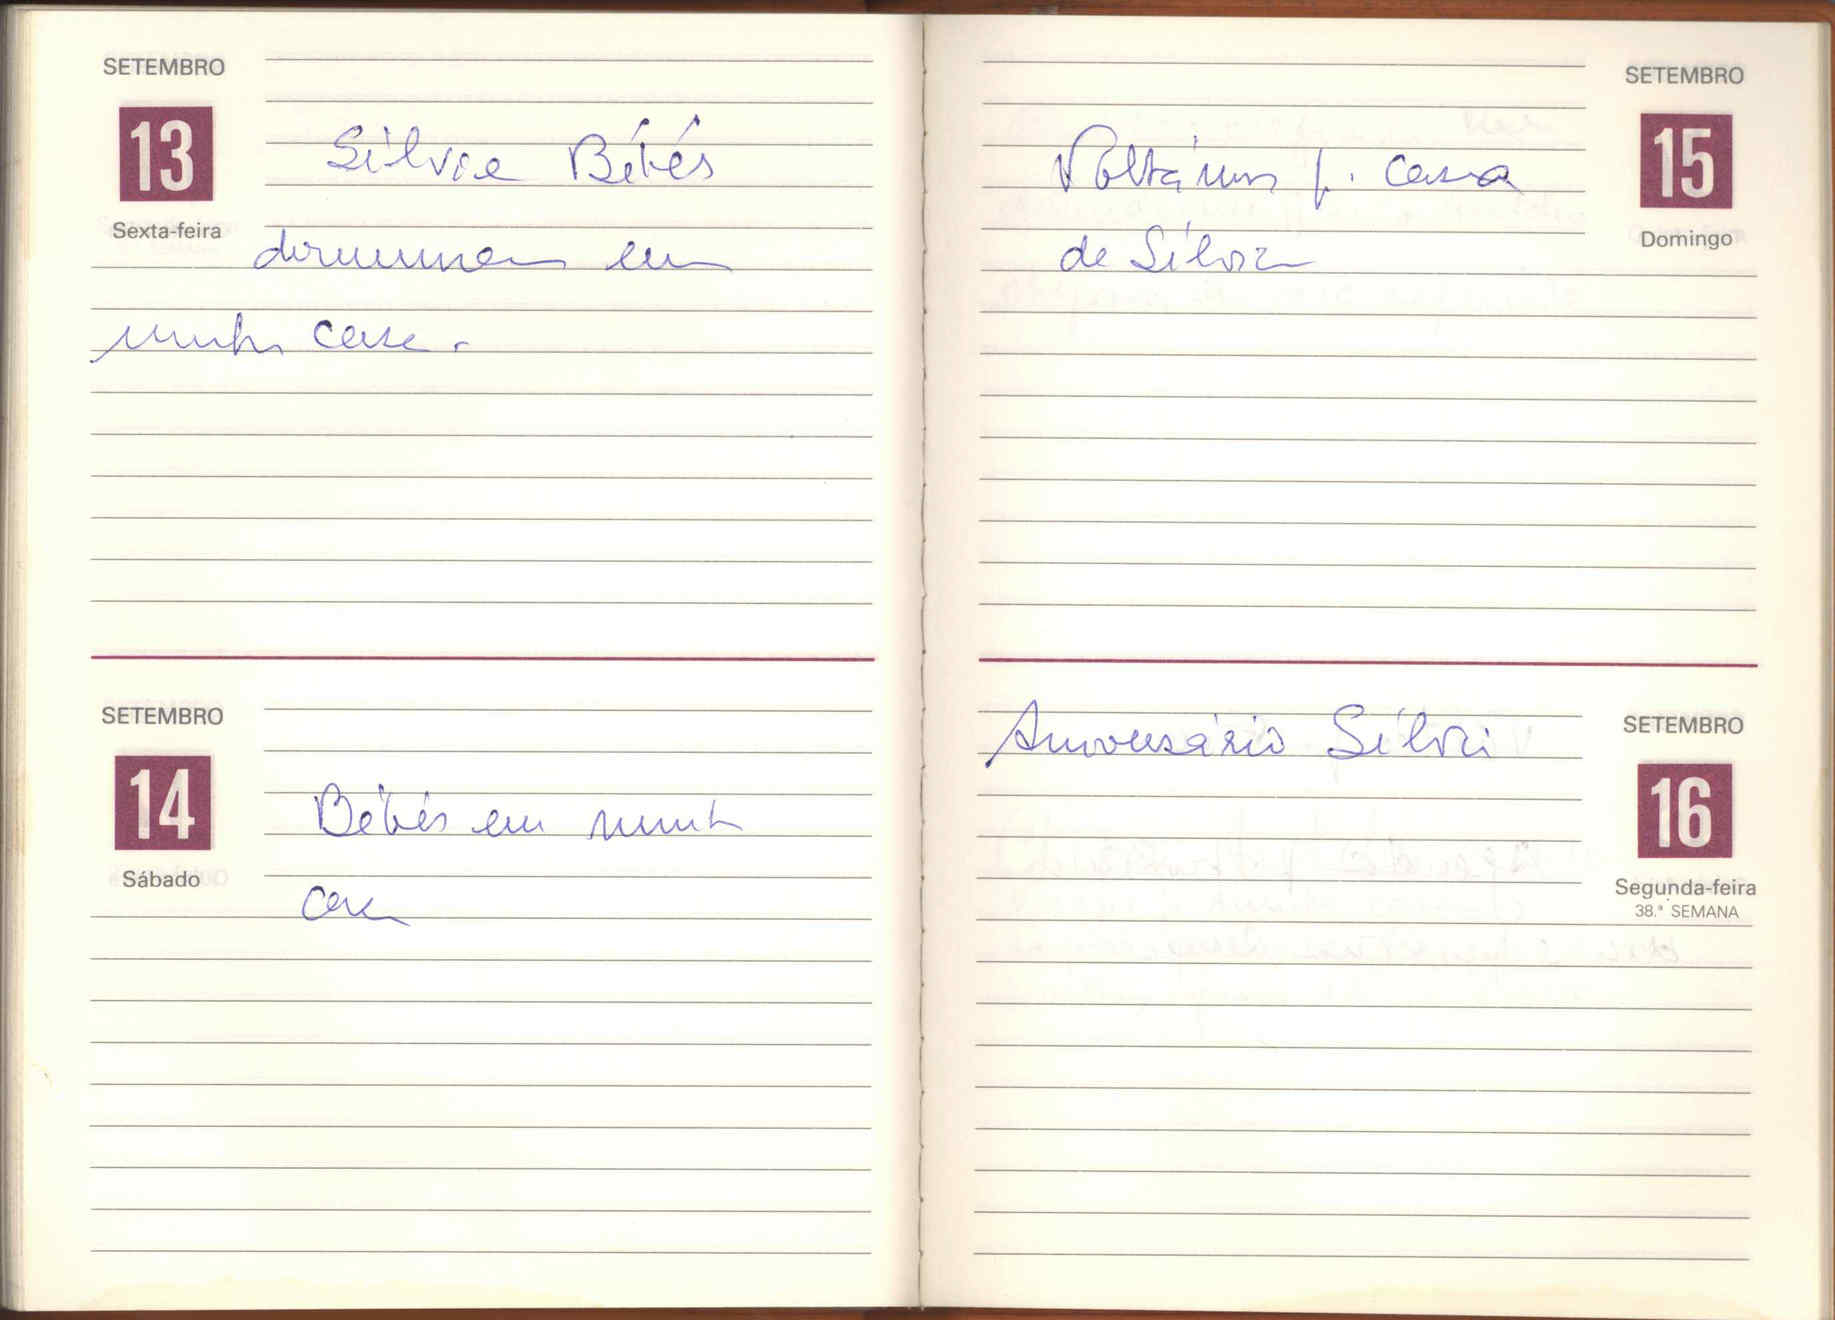 SETEMBRO
13
Sexta-feira
Sílvia Bébés
dormiram em
minha casa.
SETEMBRO
14
Sábado
Bébés em minha
casa
SETEMBRO
15
Domingo
Voltámos p. casa
de Sílvia
SETEMBRO
16
Segunda-feira
38.ª SEMANA
Aniversário Sílvia